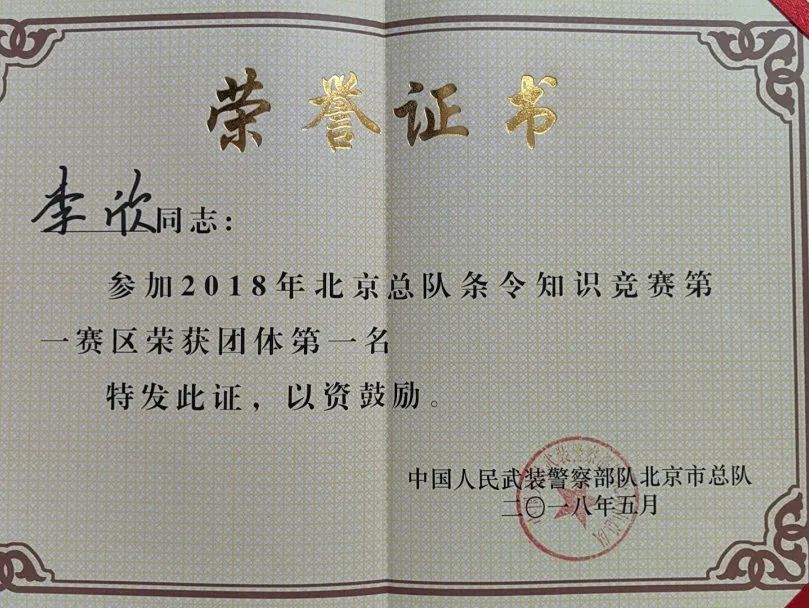 荣誉证书
李欣同志：
参加2018年北京总队条令知识竞赛第
一赛区荣获团体第一名
特发此证，以资鼓励。
中国人民武装警察部队北京市总队
二〇一八年五月